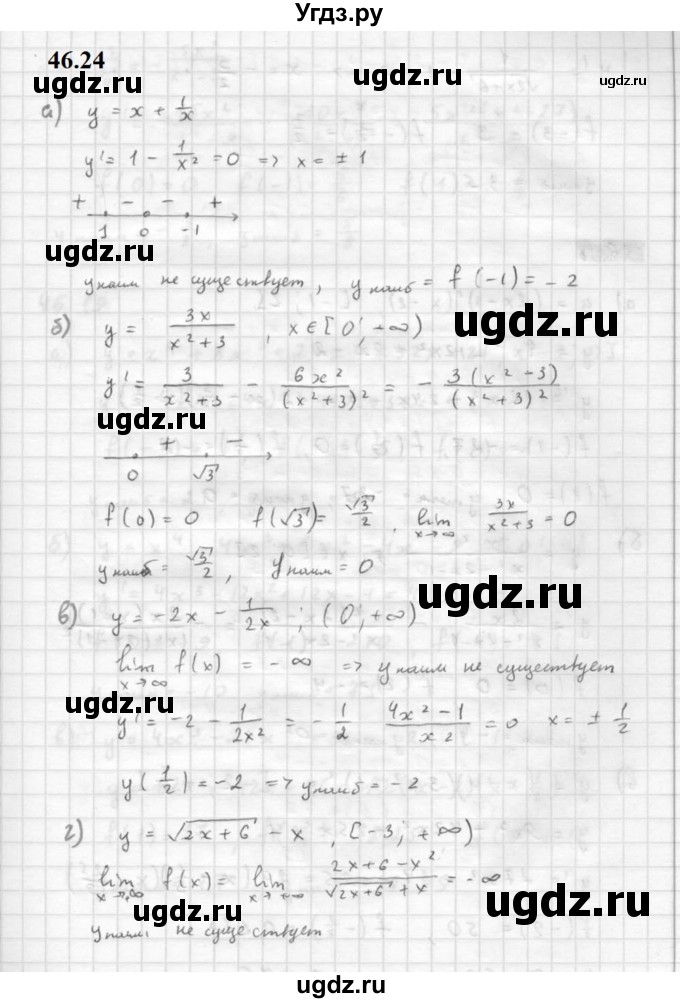 Угдз.ру
46.24
ugdz.ru
ugdz.ru
ugdz.ru
а) y = x + 1/x
y' = 1 - 1/x² = 0 => x = ± 1
+ - - +
1 0 -1
ugdz.ru
yнаим не существует, yнаиб = f(-1) = -2
ugdz.ru
б) y = 3x/(x²+3), x∈[0; +∞)
y' = 3/(x²+3) - 6x²/(x²+3)² = - 3(x²-3)/(x²+3)²
+ -
0 √3
ugdz.ru
f(0) = 0 f(√3) = √3/2, lim x→∞ 3x/(x²+3) = 0
yнаиб = √3/2, yнаим = 0
ugdz.ru
в) y = -2x - 1/2x; (0; +∞)
lim x→∞ f(x) = -∞ => yнаим не существует
ugdz.ru
y' = -2 - 1/2x² = - 1/2 (4x²-1)/x² = 0 x = ± 1/2
ugdz.ru
y(1/2) = -2 => yнаиб = -2
ugdz.ru
г) y = √2x+6 - x, [-3; +∞)
lim x→∞ f(x) = lim x→∞ (2x+6-x²)/(√2x+6 + x) = -∞
ugdz.ru
ugdz.ru
yнаим не существует
ugdz.ru
ugdz.ru